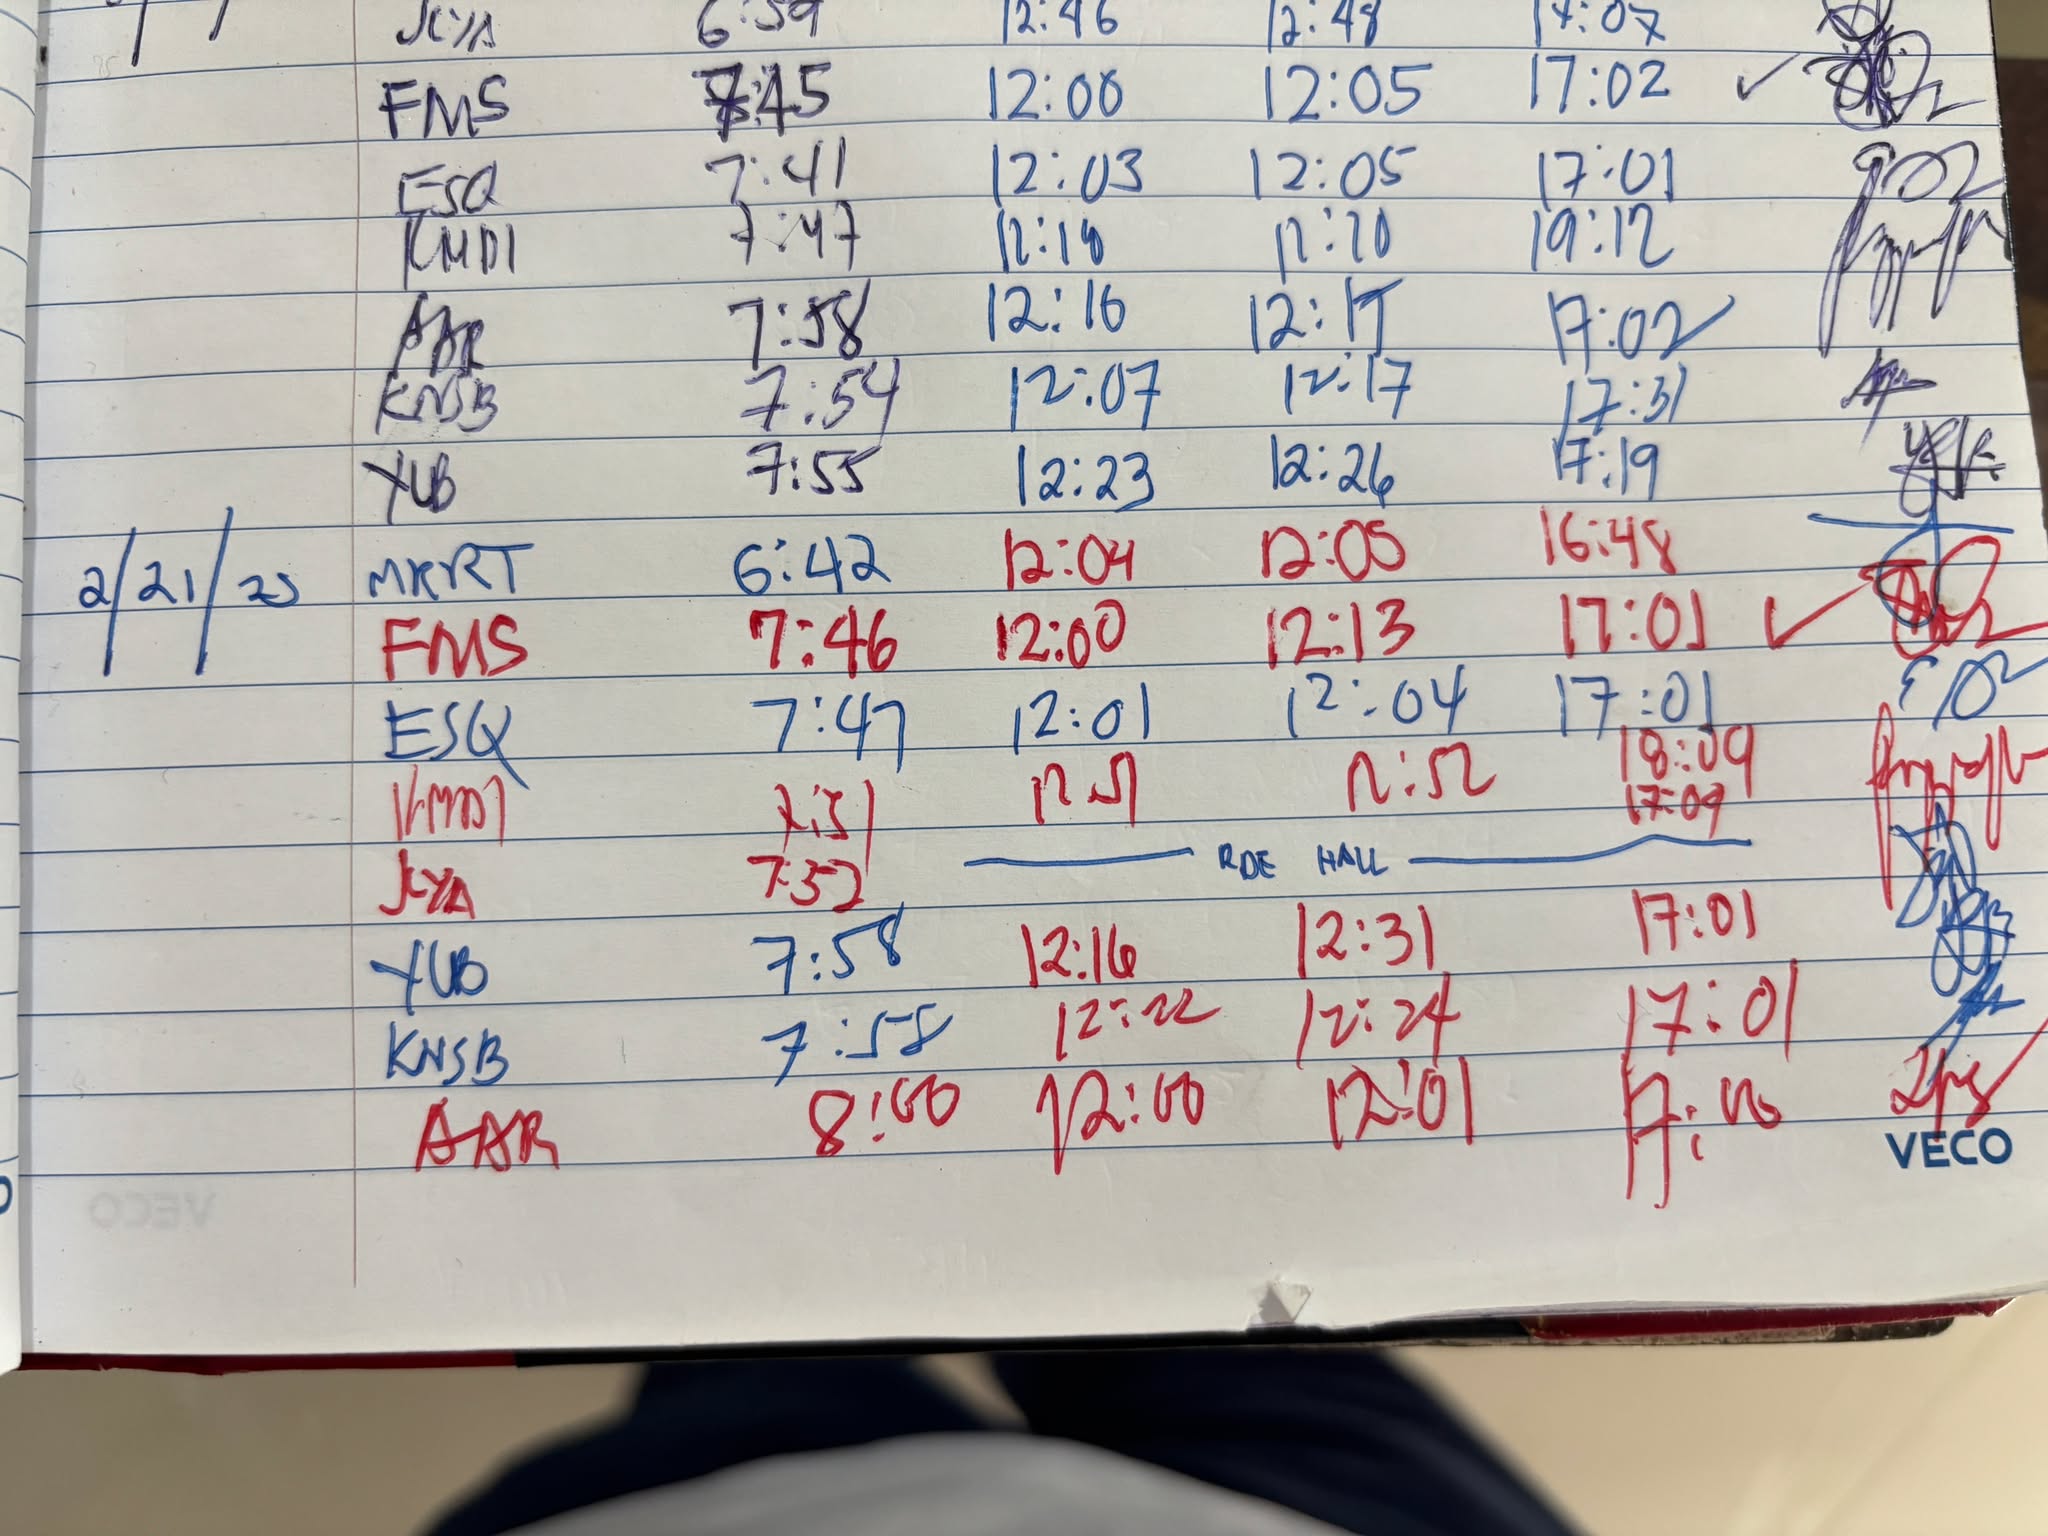 JCYA 6:59 12:46 12:48 17:07
FMS 7:45 12:00 12:05 17:02 ✓
ESQ 7:41 12:03 12:05 17:01
KMDI 7:47 12:18 12:20 19:12
AAR 7:58 12:16 12:17 17:02
KNSB 7:54 12:07 12:17 17:31
YUB 7:55 12:23 12:26 17:19
2/21/25 MKRT 6:42 12:04 12:05 16:48
FMS 7:46 12:00 12:13 17:01 ✓
ESQ 7:47 12:01 12:04 17:01
KMDI 7:51 12:51 12:52 18:09
JCYA 7:52 RDE HALL 17:09
YUB 7:58 12:16 12:31 17:01
KNSB 7:58 12:22 12:24 17:01
AAR 8:00 12:00 12:01 17:00
VECO